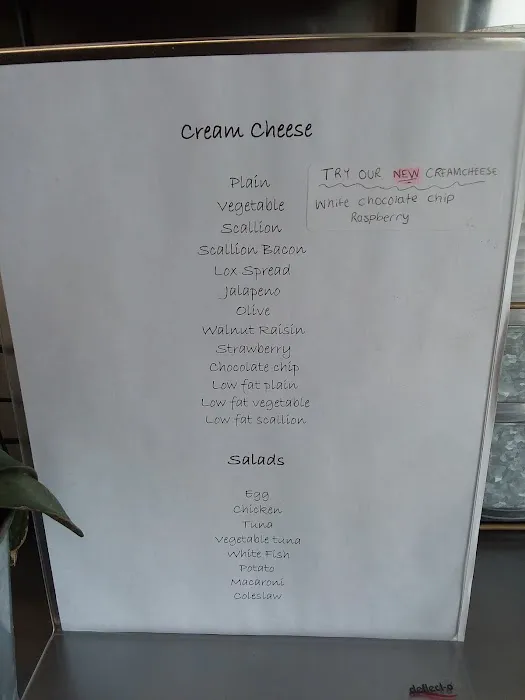 Cream Cheese
TRY OUR NEW CREAMCHEESE
White chocolate chip
Raspberry
Plain
Vegetable
Scallion
Scallion Bacon
Lox Spread
Jalapeno
Olive
Walnut Raisin
Strawberry
Chocolate chip
Low fat plain
Low fat vegetable
Low fat scallion
Salads
Egg
Chicken
Tuna
Vegetable tuna
White Fish
Potato
Macaroni
Coleslaw